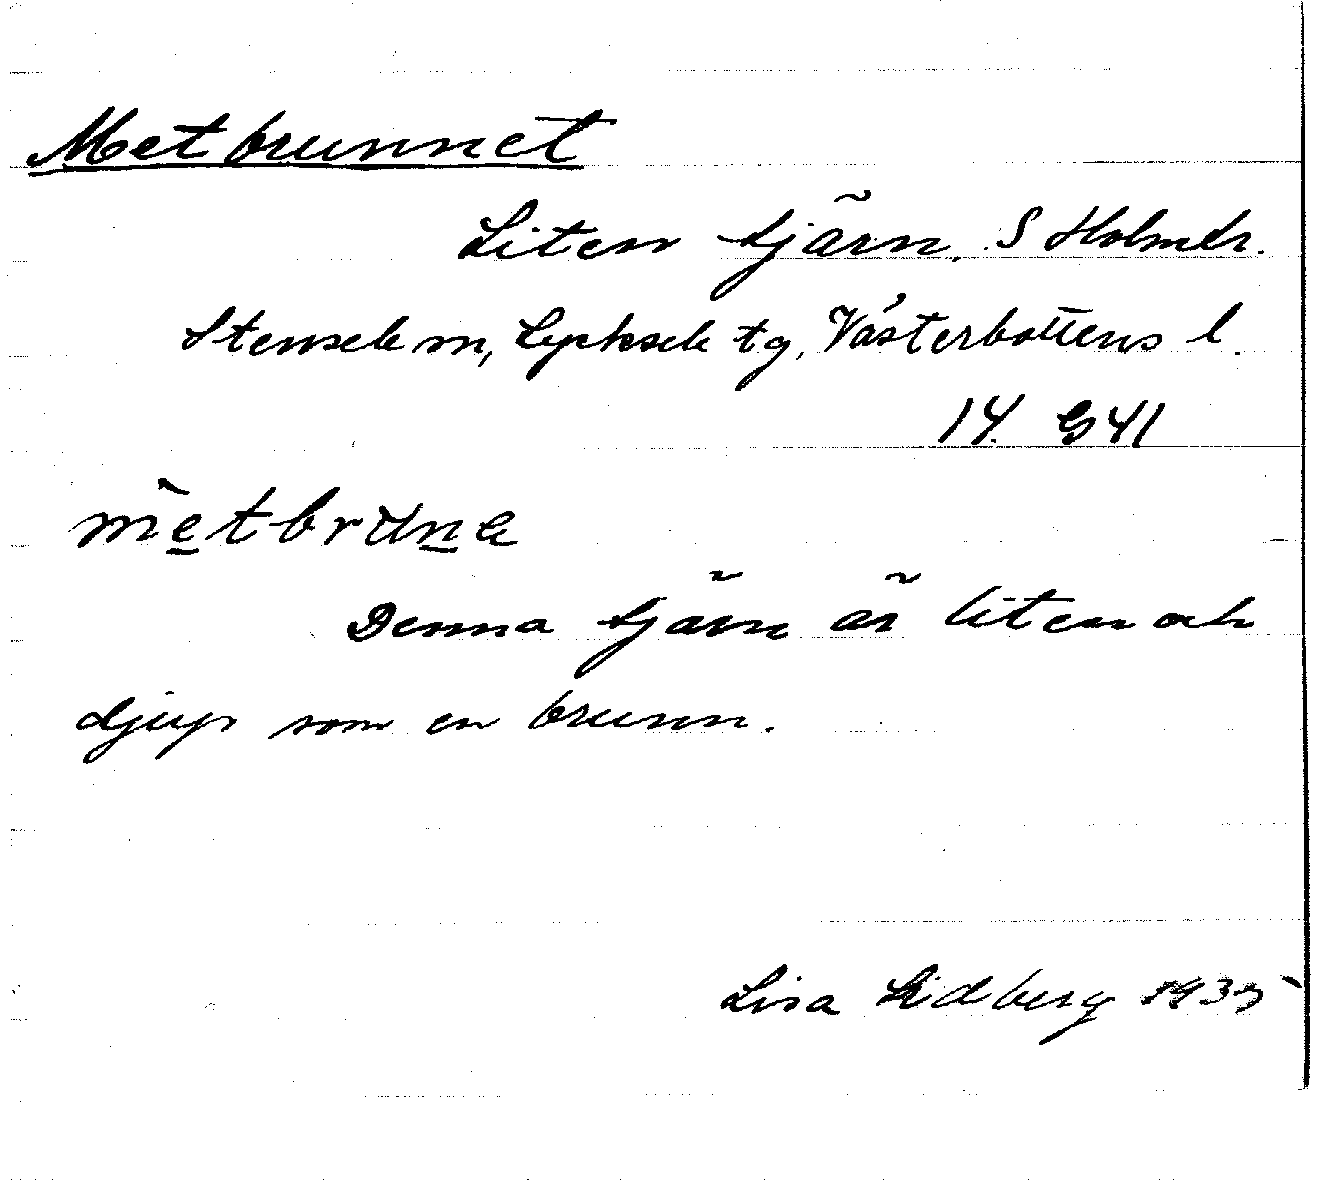 Metbrunnet
Liten tjärn, S Holmtr.
Stensele sn, Lycksele tg, Västerbottens l.
14. G 41
mètbrɯna
Denna tjärn är liten och
djup som en brunn.
Lisa Lidberg 1935